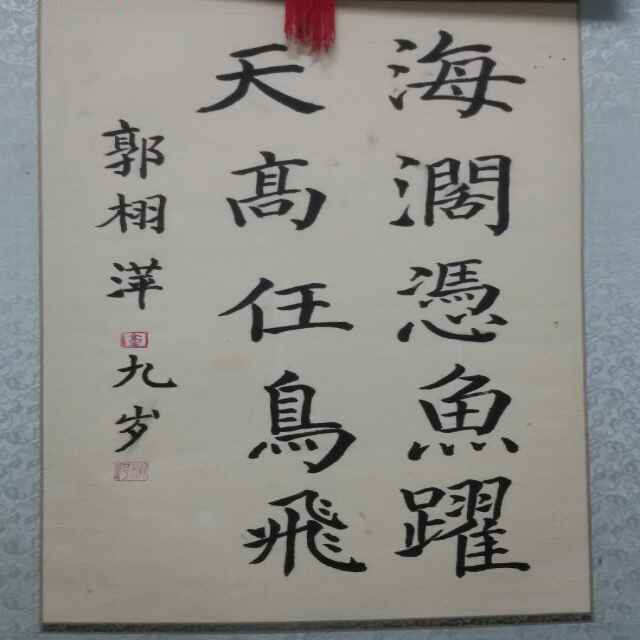 海濶憑魚躍
天高任鳥飛
郭栩洋九岁